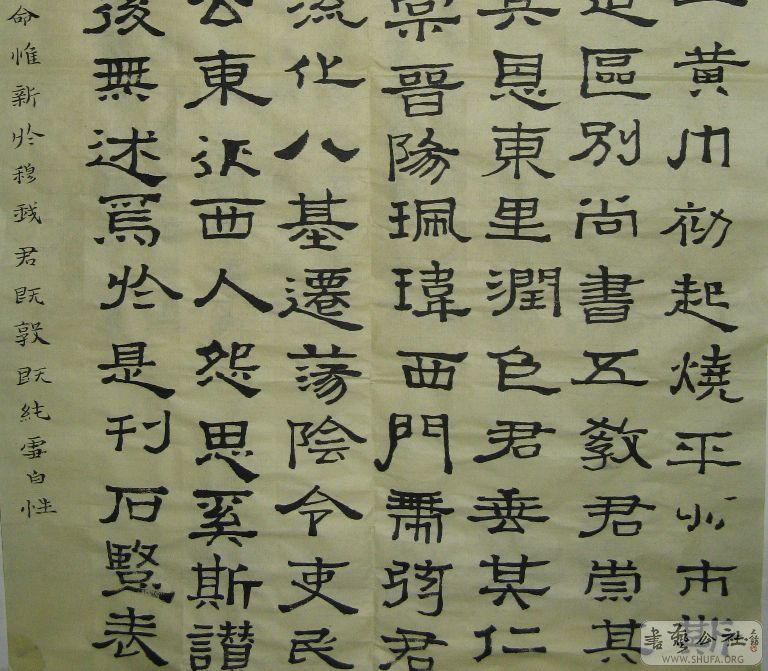 黃巾初起燒平市斯
道區別尚書五教君崇其
其恩東里潤色君垂其仁
棠晉陽珮瑋西門帶弦君
流化八基遷蕩陰令吏民
公東征西人怨思奚斯讚
後無述焉於是刊石豎表
命惟新於穆我君既敦既純雪白性
書藝公社
WWW.SHUFA.ORG